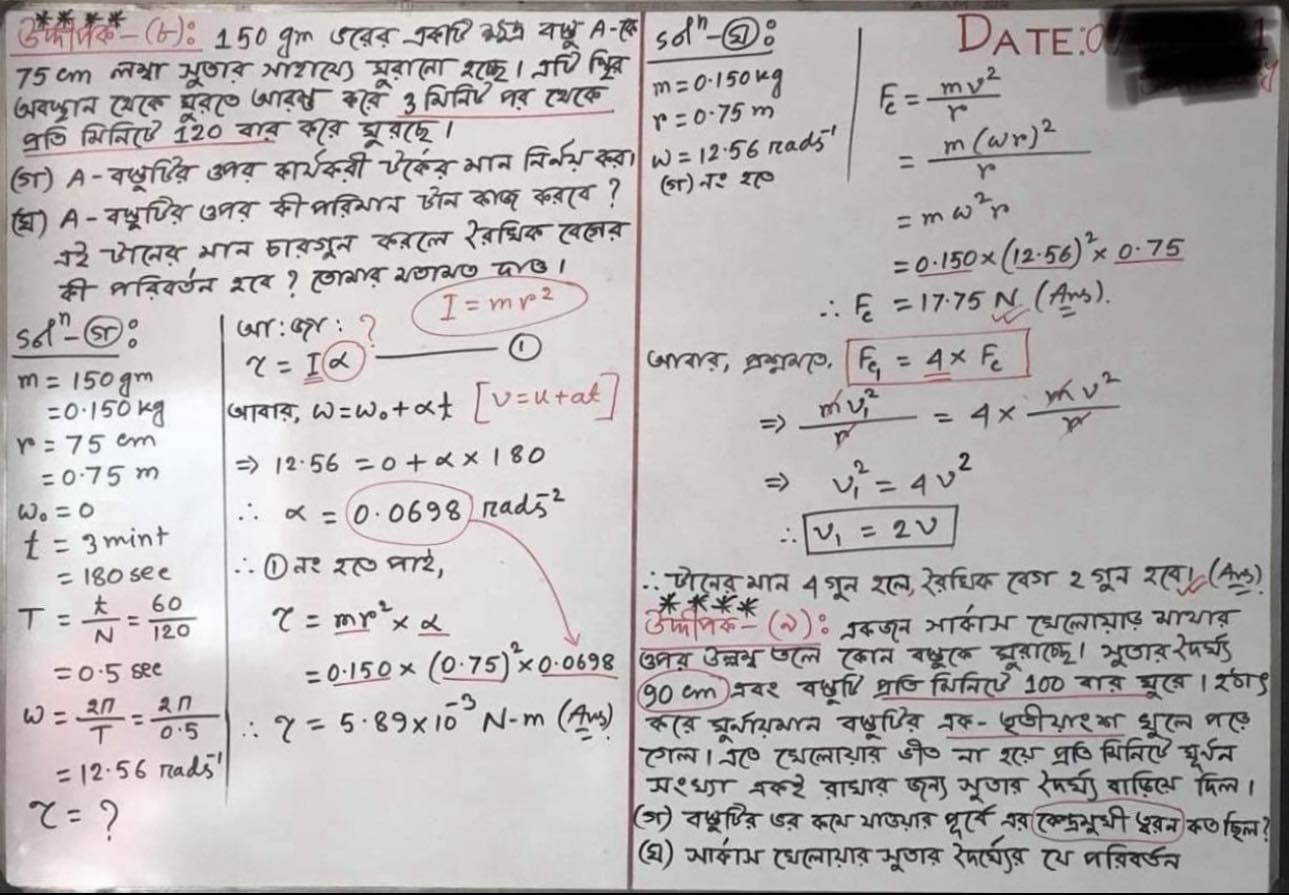 উদ্দীপক-(৮): 150 gm ভরের একটি ক্ষুদ্র বস্তু A-কে
75 cm লম্বা সুতার সাহায্যে ঘুরানো হচ্ছে। এটি স্থির
অবস্থান থেকে ঘুরতে আরম্ভ করে 3 মিনিট পর থেকে
প্রতি মিনিটে 120 বার করে ঘুরছে।
(গ) A-বস্তুটির ওপর কার্যকরী টর্কের মান নির্নয় কর।
(ঘ) A-বস্তুটির ওপর কী পরিমান টান কাজ করবে ?
এই টানের মান চারগুন করলে রৈখিক বেগের
কী পরিবর্তন হবে ? তোমার মতামত দাও।
I = mr²
solⁿ-(গ):
m = 150 gm
= 0.150 kg
r = 75 cm
= 0.75 m
ω₀ = 0
t = 3 mint
= 180 sec
T = t/N = 60/120
= 0.5 sec
ω = 2π/T = 2π/0.5
= 12.56 rads⁻¹
τ = ?
আ: জা: ?
τ = Iα ——— ①
আবার, ω = ω₀ + αt [v = u + at]
⇒ 12.56 = 0 + α × 180
∴ α = 0.0698 rads⁻²
∴ ① নং হতে পাই,
τ = mr² × α
= 0.150 × (0.75)² × 0.0698
∴ τ = 5.89 × 10⁻³ N-m (Ans)
solⁿ-(ঘ):
m = 0.150 kg
r = 0.75 m
ω = 12.56 rads⁻¹
(গ) নং হতে
DATE:0
F_c = mv²/r
= m(ωr)²/r
= mω²r
= 0.150 × (12.56)² × 0.75
∴ F_c = 17.75 N (Ans).
আবার, প্রশ্নমতে, F_c₁ = 4 × F_c
⇒ mv₁²/r = 4 × mv²/r
⇒ v₁² = 4v²
∴ v₁ = 2v
∴ টানের মান 4 গুন হলে, রৈখিক বেগ 2 গুন হবে। (Ans)
উদ্দীপক-(৯): একজন সার্কাস খেলোয়াড় মাথার
ওপর উলম্ব তলে কোন বস্তুকে ঘুরাচ্ছে। সুতার দৈর্ঘ্য
90 cm এবং বস্তুটি প্রতি মিনিটে 100 বার ঘুরে। হঠাৎ
করে ঘুর্নায়মান বস্তুটির এক-তৃতীয়াংশ খুলে পড়ে
গেল। এতে খেলোয়ার ভীত না হয়ে প্রতি মিনিটে ঘূর্নন
সংখ্যা একই রাখার জন্য সুতার দৈর্ঘ্য বাড়িয়ে দিল।
(গ) বস্তুটির ভর কমে যাওয়ার পূর্বে এর কেন্দ্রমুখী ত্বরন কত ছিল?
(ঘ) সার্কাস খেলোয়ার সুতার দৈর্ঘ্যের যে পরিবর্তন